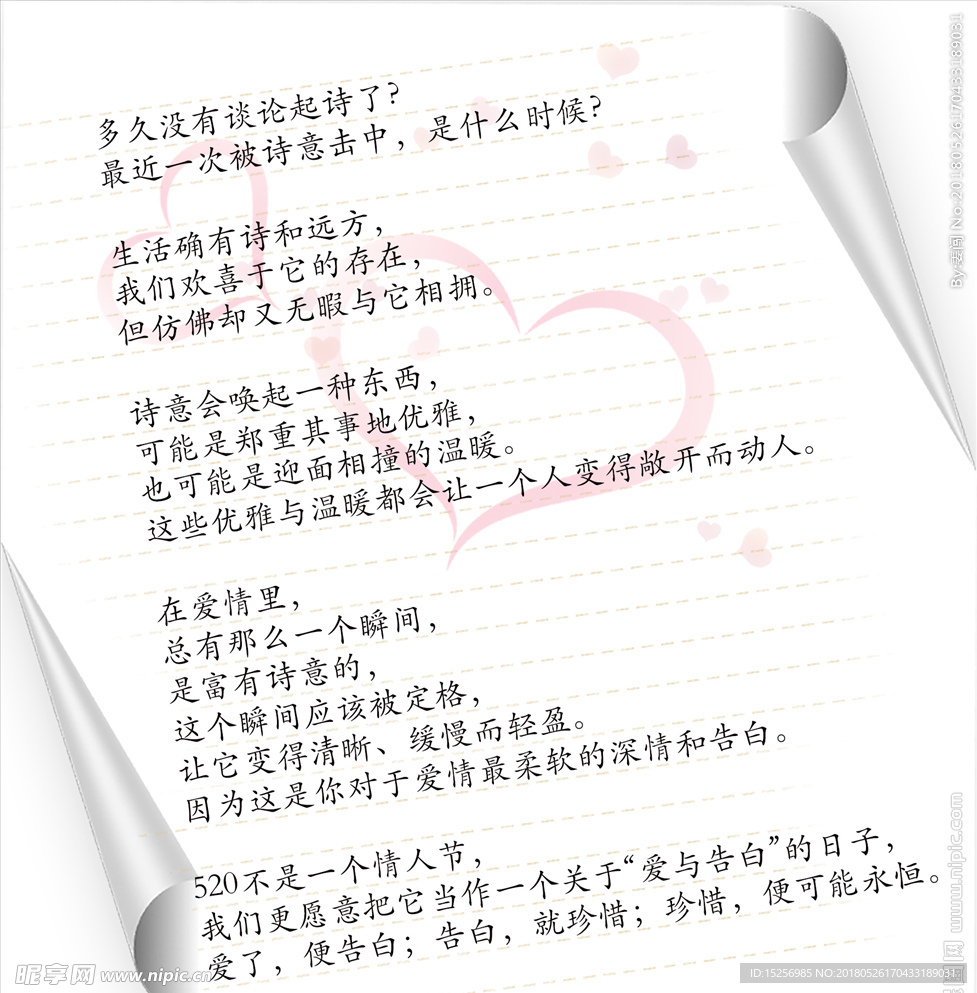 多久没有谈论起诗了?
最近一次被诗意击中，是什么时候?
生活确有诗和远方，
我们欢喜于它的存在，
但仿佛却又无暇与它相拥。
诗意会唤起一种东西，
可能是郑重其事地优雅，
也可能是迎面相撞的温暖。
这些优雅与温暖都会让一个人变得敞开而动人。
在爱情里，
总有那么一个瞬间，
是富有诗意的，
这个瞬间应该被定格，
让它变得清晰、缓慢而轻盈。
因为这是你对于爱情最柔软的深情和告白。
520不是一个情人节，
我们更愿意把它当作一个关于“爱与告白”的日子，
爱了，便告白；告白，就珍惜；珍惜，便可能永恒。
昵享网 www.nipic.cn
ID:15256985 NO:20180526170433189031
www.nipic.com
No:20180526170433189031